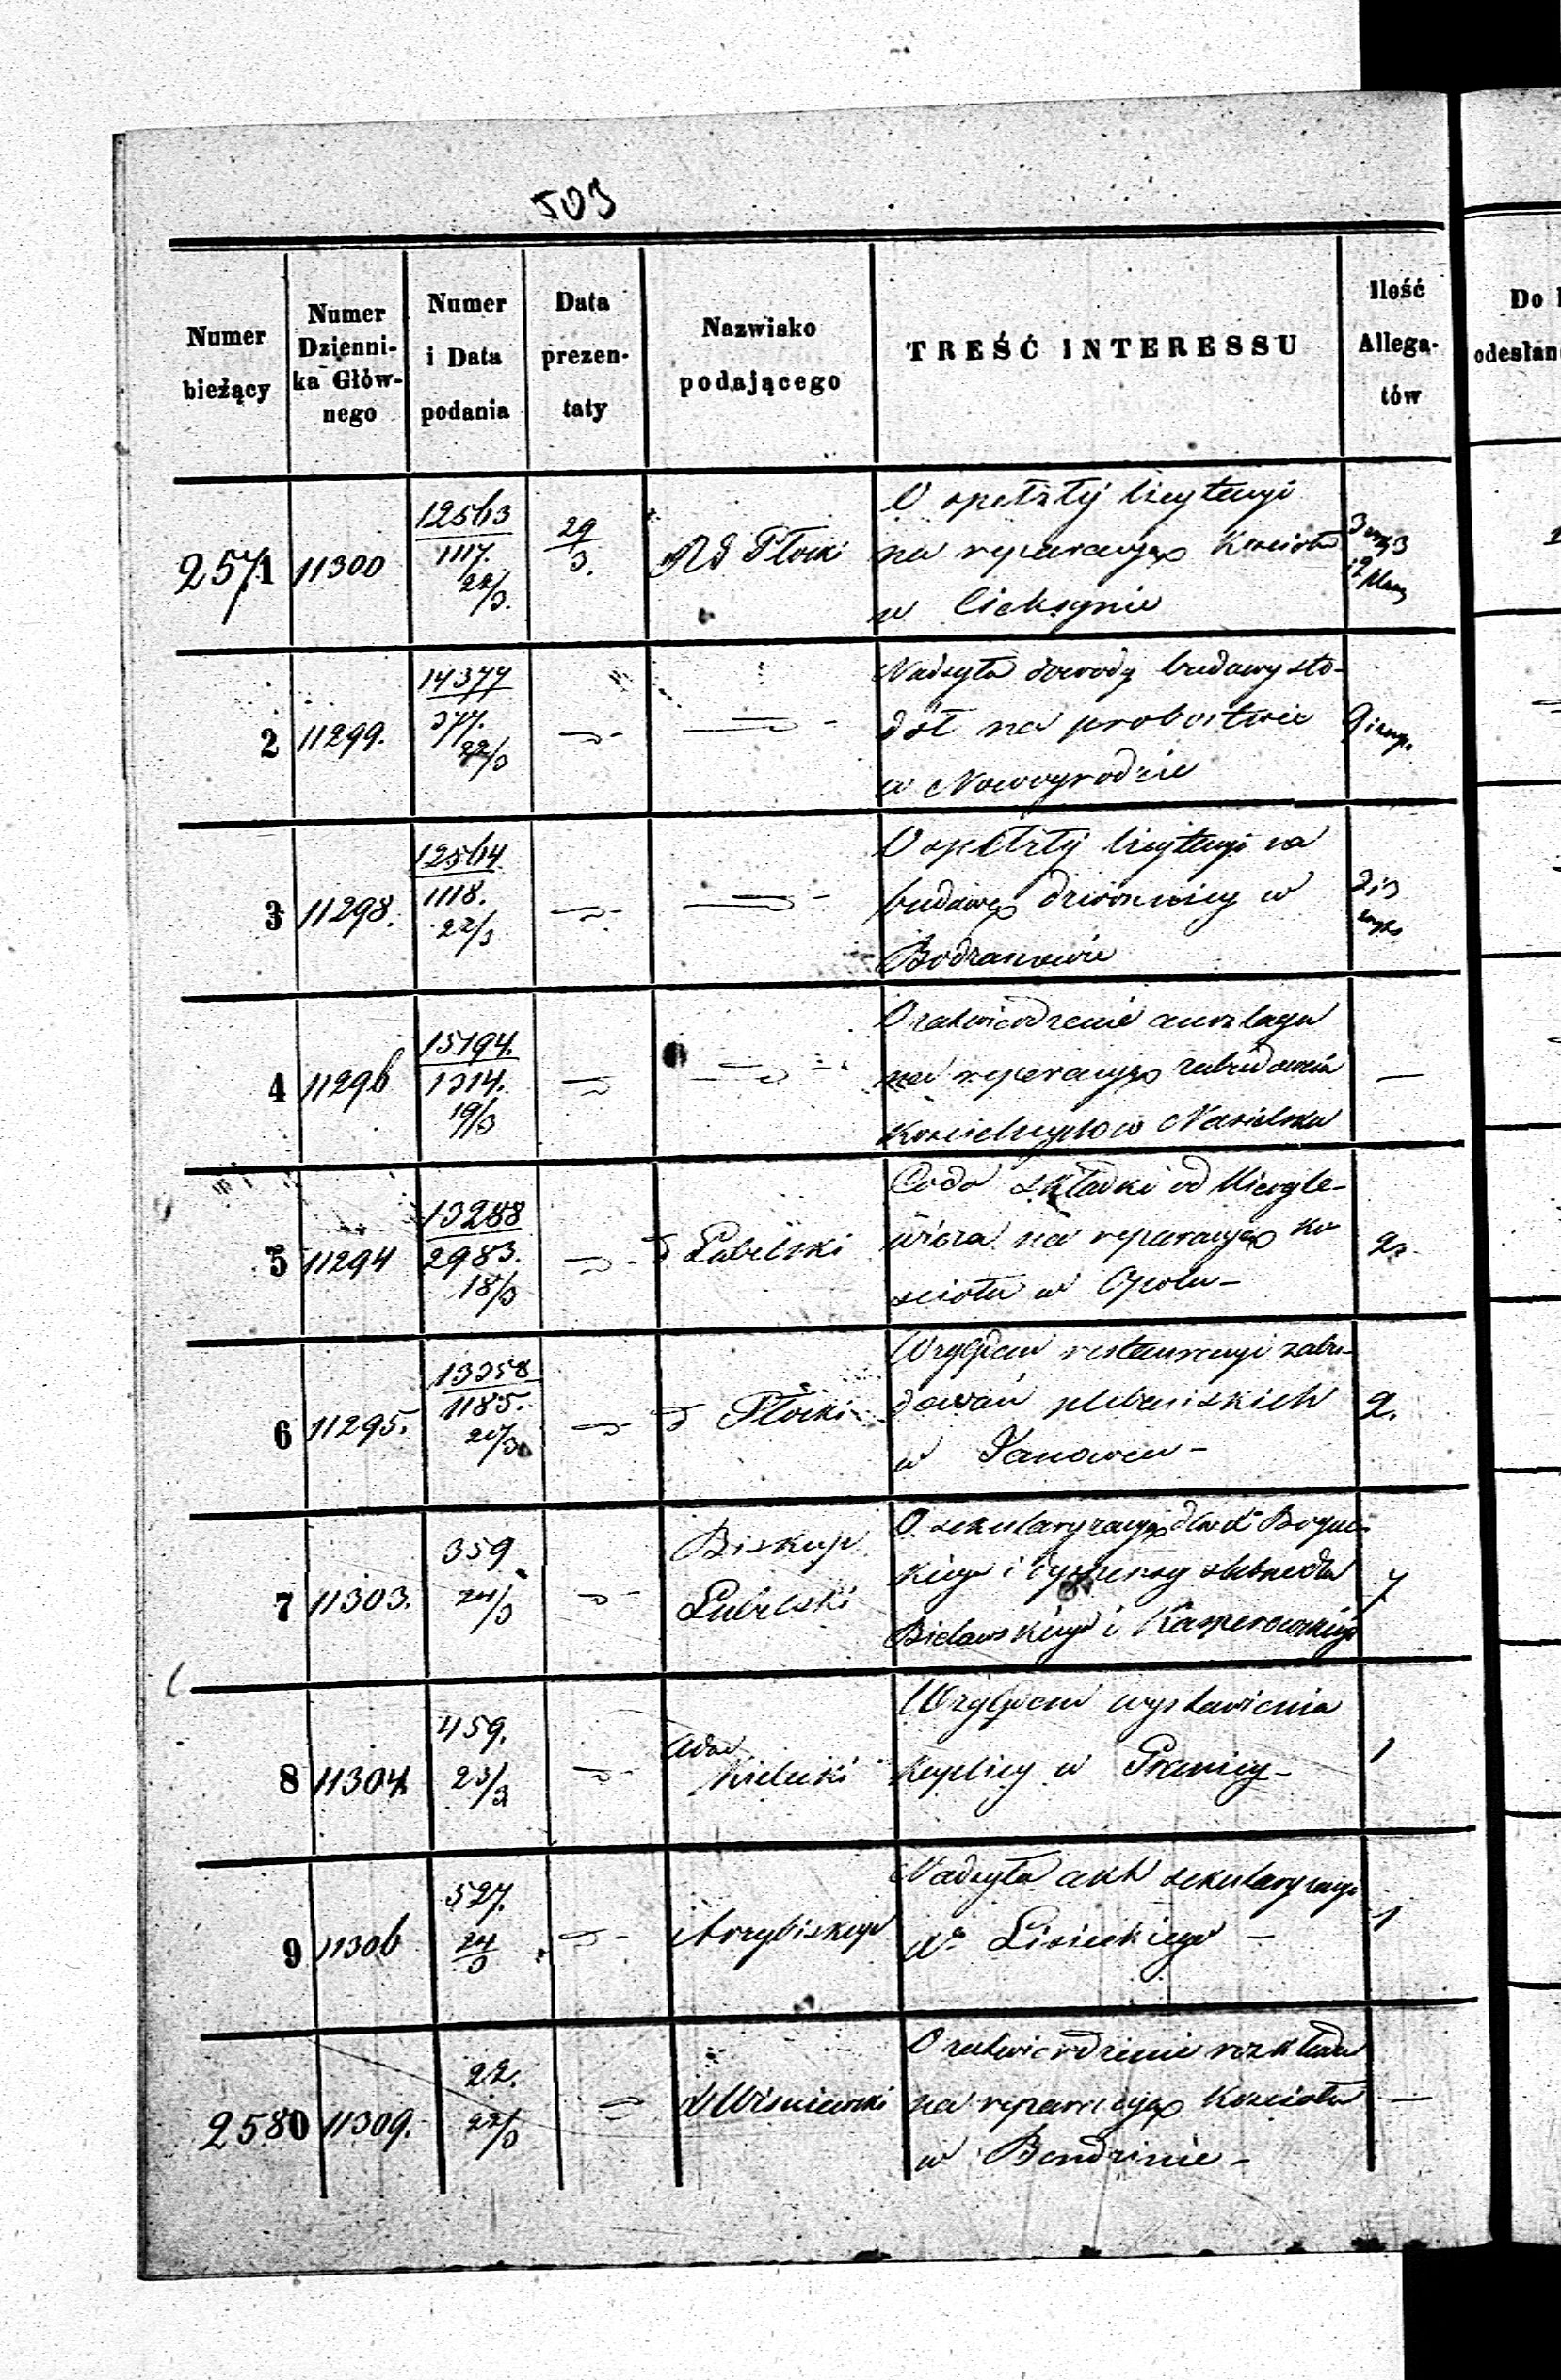 503
Numer bieżący
Numer Dzienni-ka Głów-nego
Numer i Data podania
Data prezen-taty
Nazwisko podającego
TREŚĆ INTERESSU
Ilość Allega-tów
Do
odesłan
2571 11300 12563 1117. 22/3. 29/3. Rd Płocki
O spełzłéj licytacyi
na reparacyę Kościoła
w Cieksynie
2 11299. 14377 377. 22/3
Nadsyła dowody budowy sto-
dół na probostwie
w Nowogrodzie
3 11298. 12564 1118. 22/3
O spełzłéj licytacyi na
budowę dzwonnicy w
Bodzanowie
4 11296 15194. 1314. 19/3
O zatwierdzenie anszlagu
na reperacyę zabudowań
Kościelnych w Nasielsku
—
5 11294 13288 2983. 18/3 d Lubelski
Co do składki od
na reparacyę ko
ścioła w Opolu —
2
6 11295. 13358 1185. 20/3 d Płocki
Względem restauracyi zabu-
dowań plebańskich
w Janowcu —
2.
7 11303. 359 24/3 Biskup Lubelski
O sekularyzacyę dla X Boguc-
kiego i dyspensy dla
Bielawskiego i Kasperowskiego
8 11304 459. 23/3 Adm Kielecki
Względem wystawienia
kaplicy w Granicy —
1
9 11306 527. 24/3 Arcybiskup
Nadsyła akt sekularyzacyi
Xa Lisieckiego —
1
2580 11309. 22. 22/3 X Wiśniewski
O zatwierdzenie rozkładu
na reparacyę Kościoła
w Bendzinie —
—